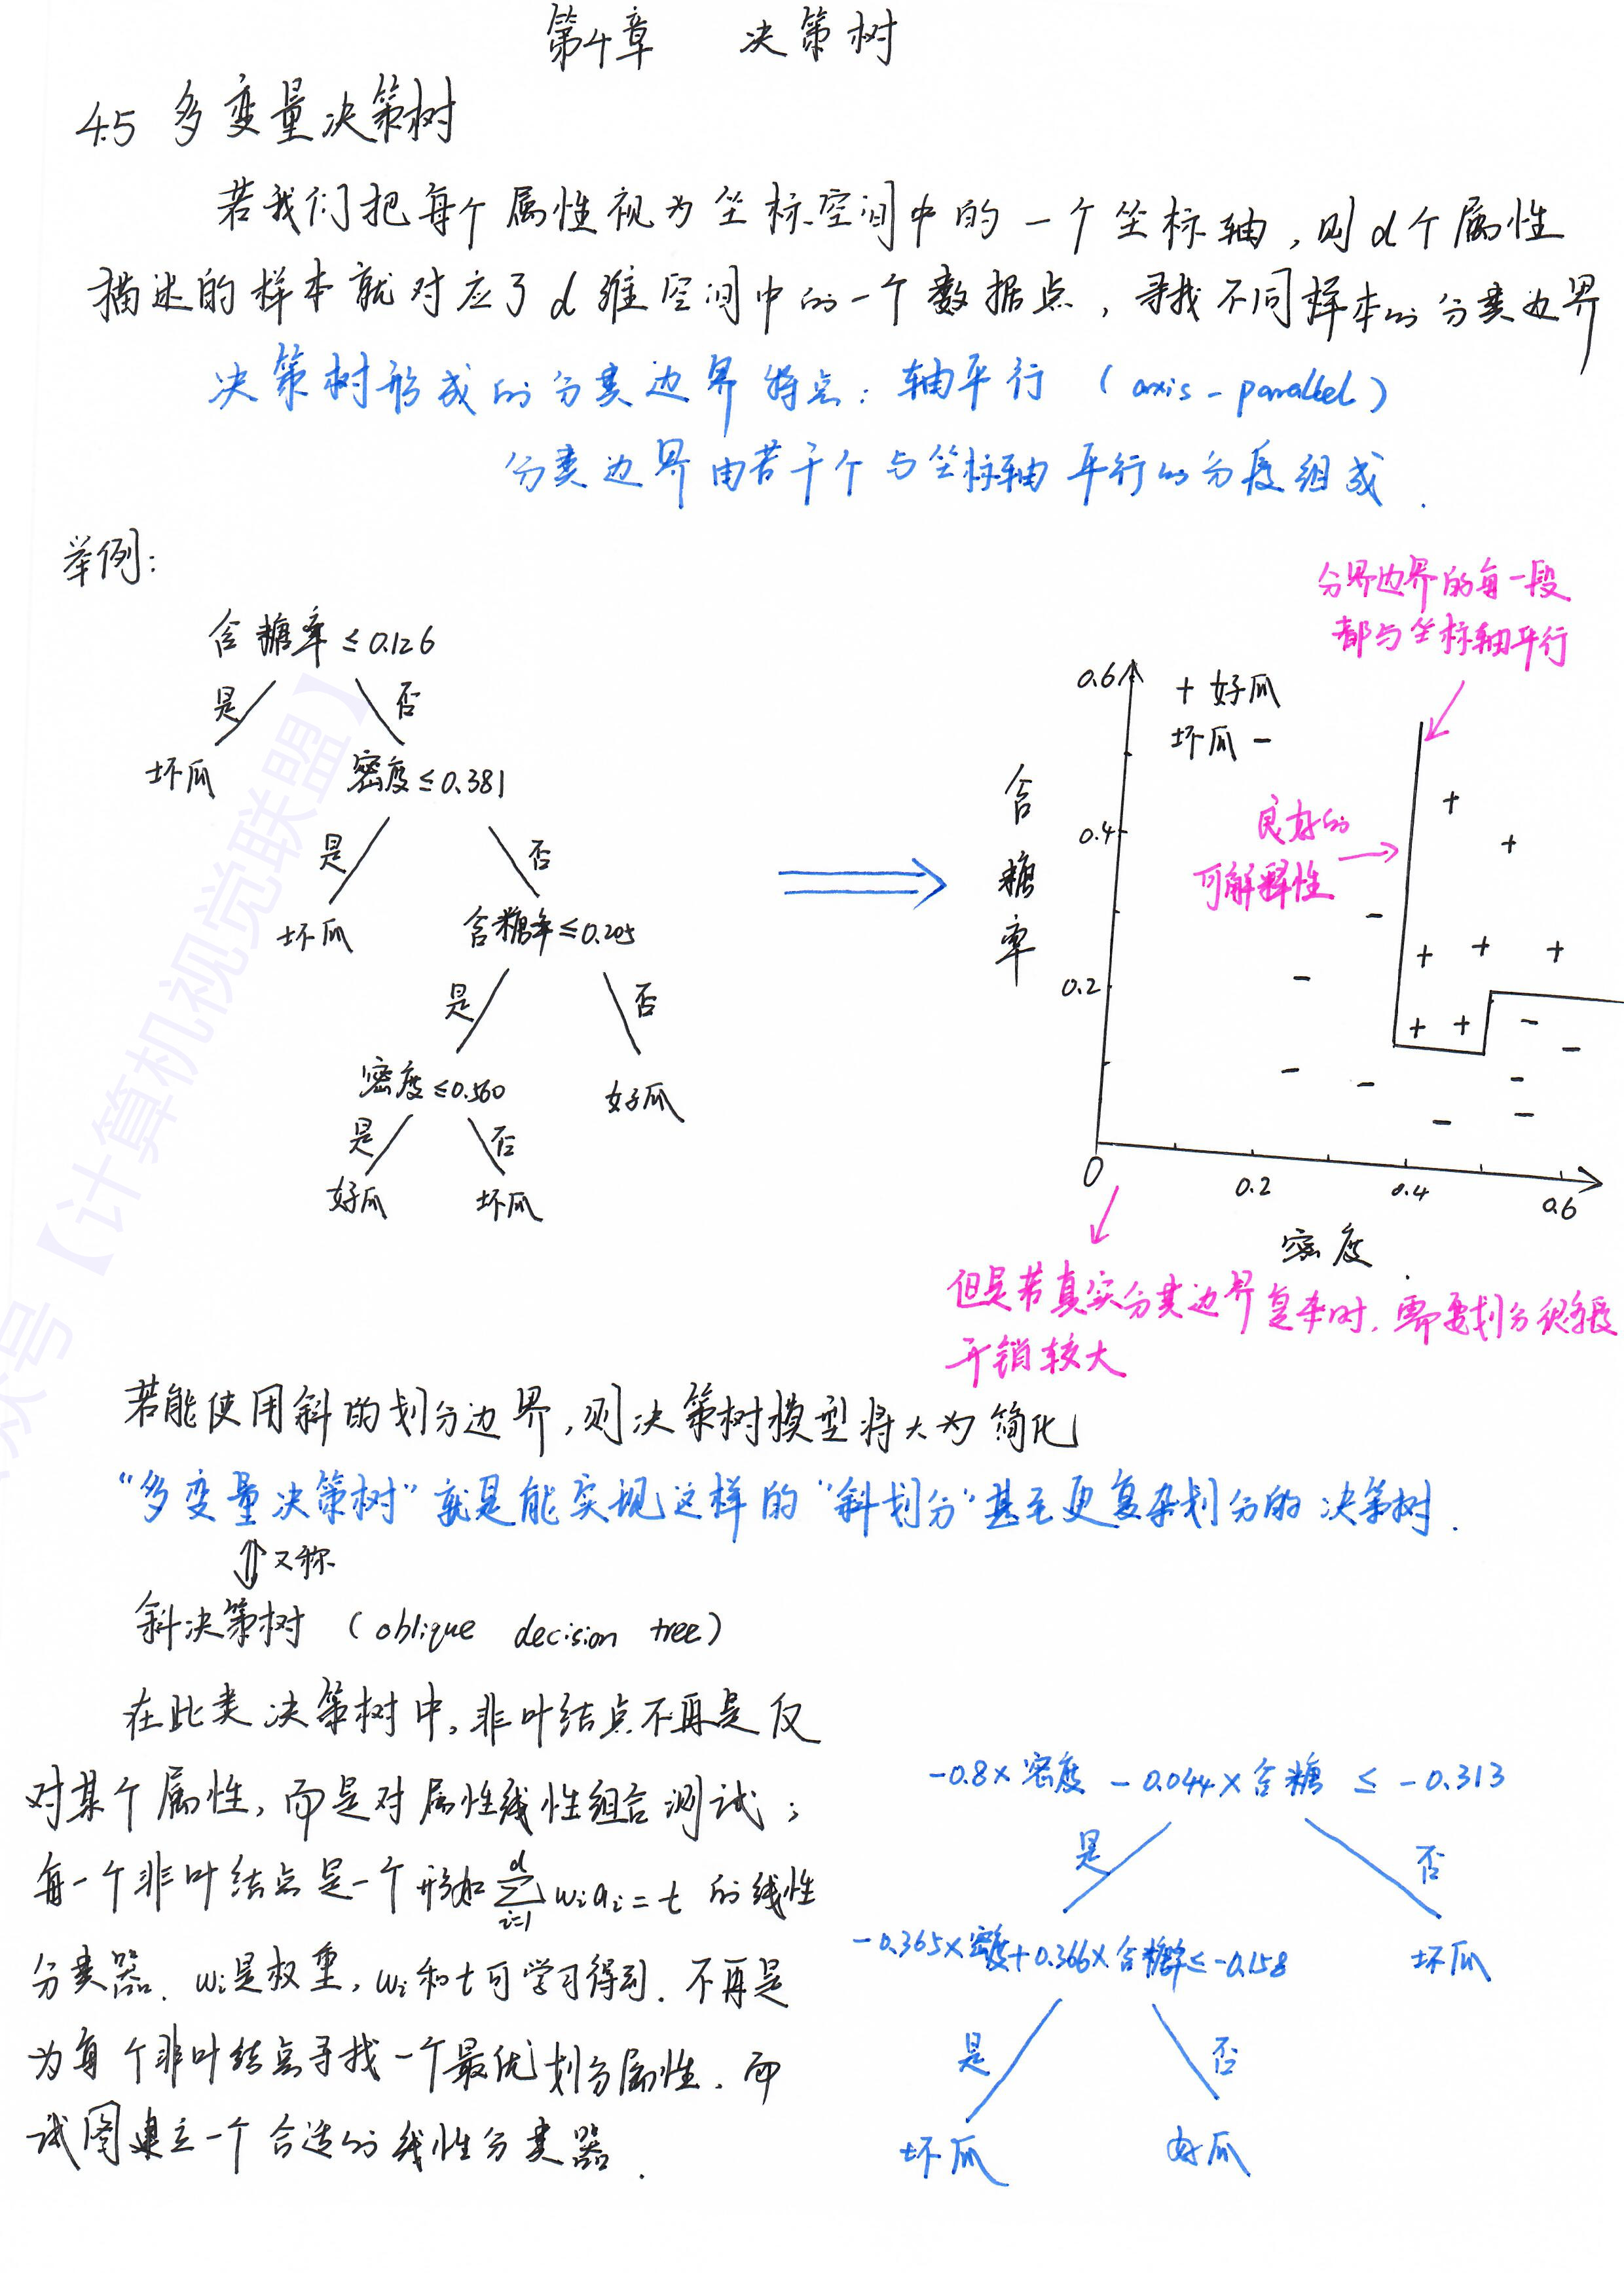 第4章 决策树
4.5 多变量决策树
若我们把每个属性视为坐标空间中的一个坐标轴,则d个属性
描述的样本就对应了d维空间中的一个数据点,寻找不同样本的分类边界
决策树形成的分类边界特点:轴平行 (axis-parallel)
分类边界由若干个与坐标轴平行的分段组成.
举例:
含糖率≤0.126
是 否
坏瓜 密度≤0.381
是 否
坏瓜 含糖率≤0.205
是 否
密度≤0.560 好瓜
是 否
好瓜 坏瓜
分界边界的每一段
都与坐标轴平行
0.6 + 好瓜
坏瓜 -
含糖率
0.4
良好的
可解释性
0.2
0 0.2 0.4 0.6
密度.
但是若真实分类边界复杂时,需要划分很多段
开销较大
若能使用斜的划分边界,则决策树模型将大为简化
“多变量决策树”就是能实现这样的“斜划分”甚至更复杂划分的决策树.
⇕又称
斜决策树 (oblique decision tree)
在此类决策树中,非叶结点不再是仅
对某个属性,而是对属性线性组合测试;
每一个非叶结点是一个形如 $\sum_{i=1}^{d} w_i a_i = t$ 的线性
分类器. wi是权重, wi和t可学习得到. 不再是
为每个非叶结点寻找一个最优划分属性. 而
试图建立一个合适的线性分类器.
-0.8×密度 -0.044×含糖 ≤ -0.313
是 否
-0.365×密度+0.366×含糖率≤-0.158 坏瓜
是 否
坏瓜 好瓜
公众号【计算机视觉联盟】